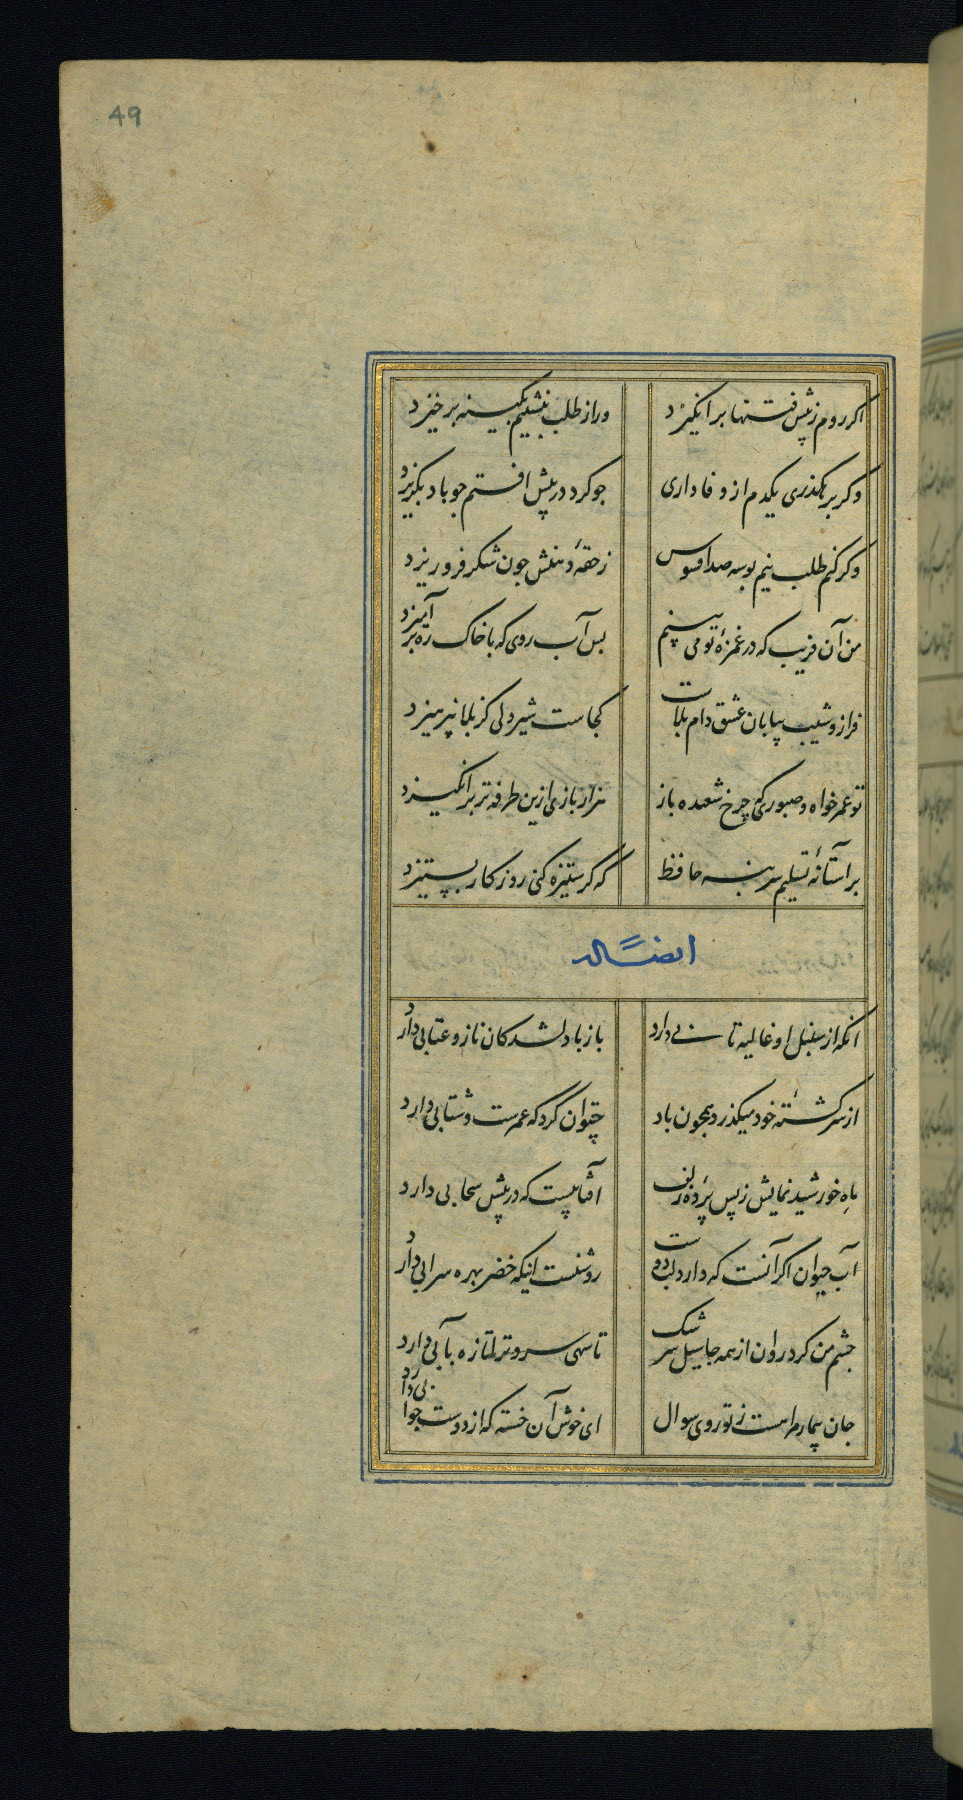 49
اکر روم ز پیش فتنها برانکیزد
ور از طلب بنشینم بکینه برخیزد
وکر برهکذری یکدم از وفاداری
جو کرد در پیش افتم جو باد بکریزد
وکر کنم طلب نیم بوسه صد افسوس
ز حقهٔ دهنش جون شکر فرو ریزد
من آن فریب که در غمزهٔ تو می بینم
بس آب روی که با خاک ره برآمیزد
فراز و شیب بیابان عشق دام بلاست
کجاست شیردلی کز بلا نپرهیزد
تو عمر خواه و صبوری که چرخ شعبده باز
هزار بازی ازین طرفه تر برانکیزد
بر آستانهٔ تسلیم سر بنه حافظ
که کر ستیزه کنی روزکار بستیزد
ایضاً له
انکه از سنبل او غالیه تابی دارد
باز با دلشدکان ناز و عتابی دارد
از سر کشتهٔ خود میکذرد همجون باد
چتوان کرد که عمرست و شتابی دارد
ماهِ خورشید نمایش ز پس پردهٔ زلف
آفتابیست که در پیش سحابی دارد
آب حیوان اکر آنست که دارد لب دوست
روشنست اینکه خضر بهره سرابی دارد
جشم من کرد روان از همه جا سیل سرشک
تا سهی سرو ترا تازه بآبی دارد
جان بیمار مراست ز تو روی سوال
ای خوش آن خسته که از دوست جوابی دارد